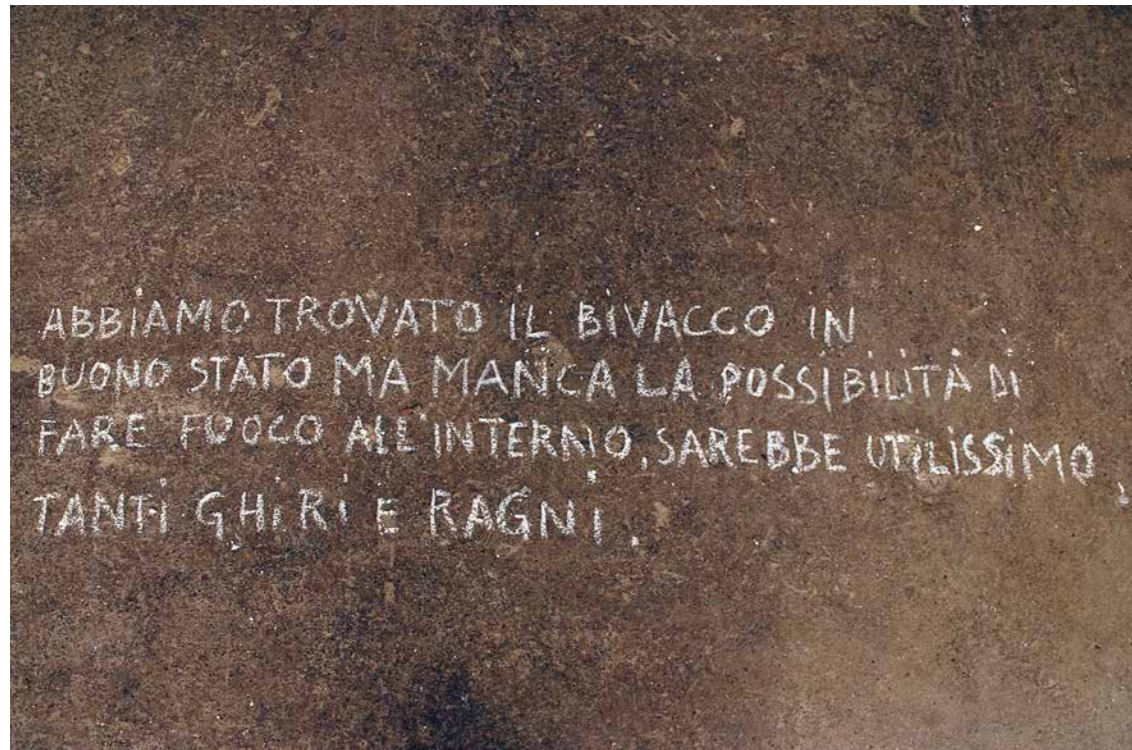 ABBiAMO TROVATO iL BiVACCO IN
BUONO STATO MA MANCA LA POSSIBILITÀ Di
FARE FUOCO ALL'INTERNO, SAREBBE UTiLiSSiMO,
TANTi GHiRi E RAGNi.